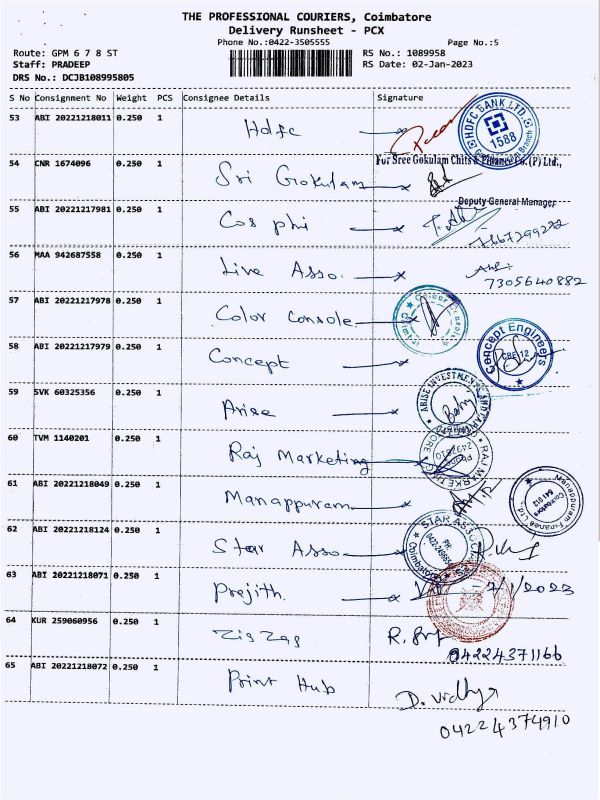 THE PROFESSIONAL COURIERS, Coimbatore
Delivery Runsheet - PCX
Phone No.:0422-3505555 Page No.:5
Route: GPM 6 7 8 ST RS No.: 1089958
Staff: PRADEEP RS Date: 02-Jan-2023
DRS No.: DCJB108995805
S No Consignment No Weight PCS Consignee Details Signature
53 ABI 20221218011 0.250 1 Hdfc
HDFC BANK LTD. 1588
54 CNR 1674096 0.250 1 Sri Gokulam
For Sree Gokulam Chits & Finance Co.(P) Ltd.,
Deputy General Manager
55 ABI 20221217981 0.250 1 Cos phi
56 MAA 942687558 0.250 1 Live Asso.
7305640882
57 ABI 20221217978 0.250 1 Color Console
58 ABI 20221217979 0.250 1 Concept
Concept Engineers CBE 12
59 SVK 60325356 0.250 1 Arise
60 TVM 1140201 0.250 1 Raj Marketing
RAJ MARKETING
61 ABI 20221218049 0.250 1 Manappuram
Manappuram Finance Ltd. Coimbatore 641 012
62 ABI 20221218124 0.250 1 Star Asso
STAR Coimbatore
63 ABI 20221218071 0.250 1 Prejith
64 KUR 259060956 0.250 1 Zig Zag
04224371166
65 ABI 20221218072 0.250 1 Print Hub
D. Vidhya
04224374910